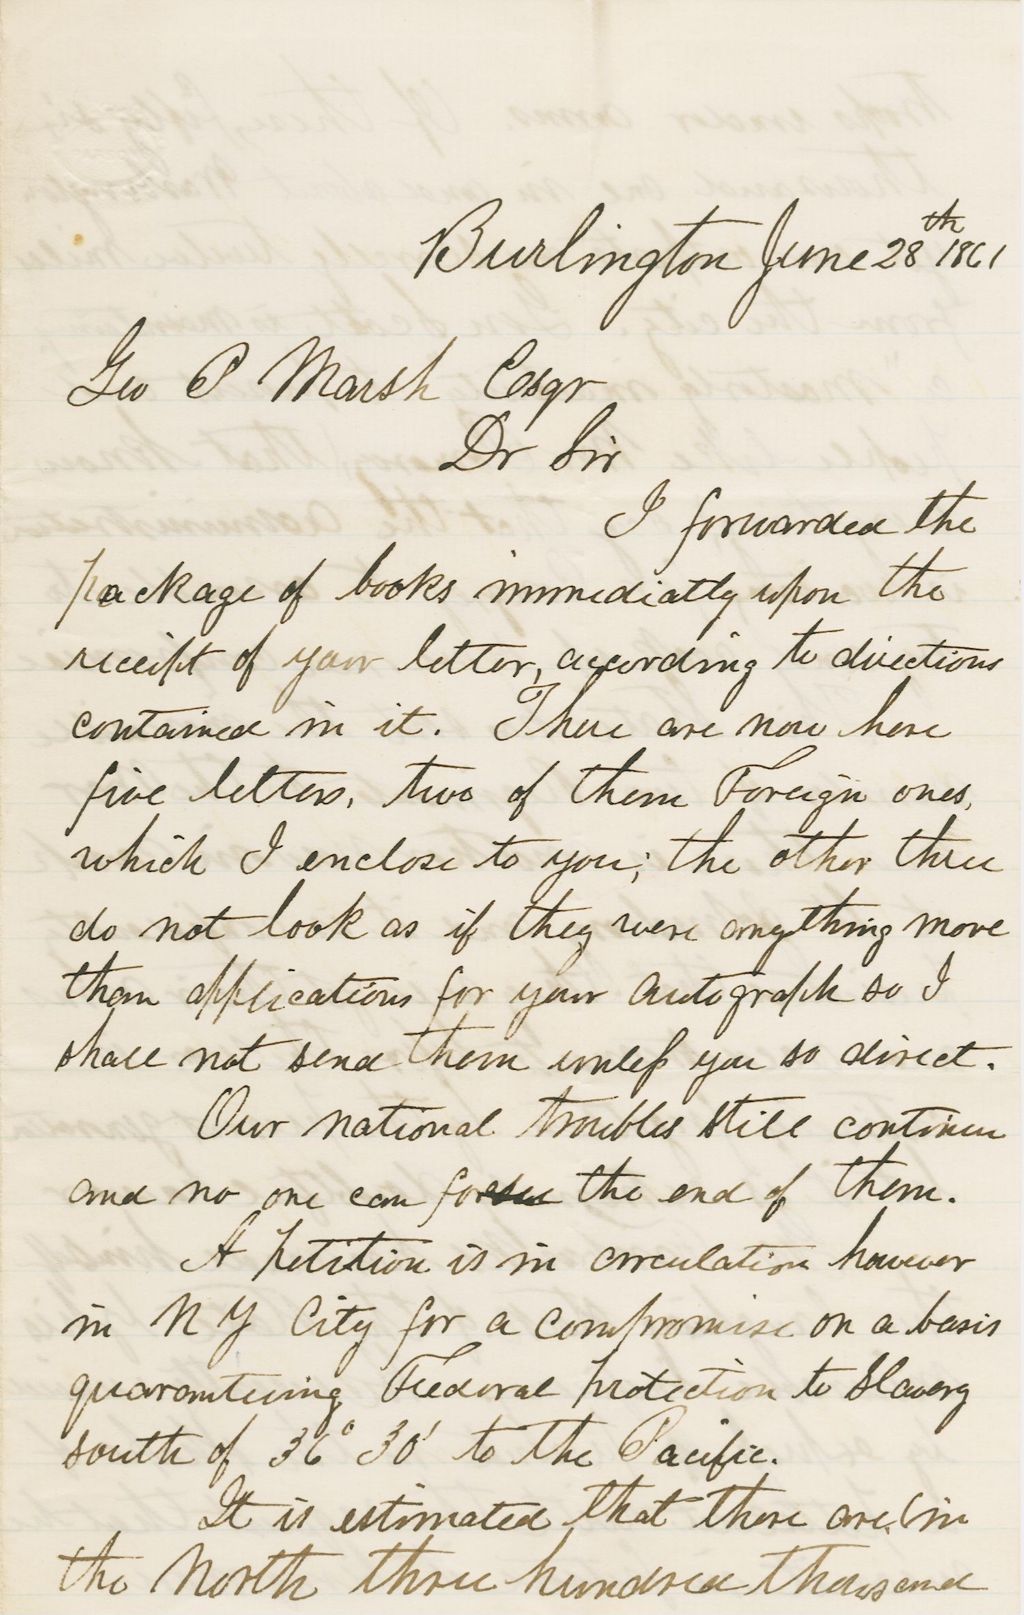 Burlington June 28th 1861
Geo P Marsh Esqr
Dr Sir
I forwarded the
package of books immediatly upon the
receipt of your letter, according to directions
contained in it. There are now here
five letters, two of them Foreign ones,
which I enclose to you; the other three
do not look as if they were anything more
than applications for your autograph so I
shall not send them unless you so direct.
Our national troubles still continue
and no one can forsee the end of them.
A petition is in circulation however
in N Y City for a compromise on a basis
guaranteeing Federal protection to Slavery
south of 36° 30' to the Pacific.
It is estimated that there are (in
the North three hundred thousand